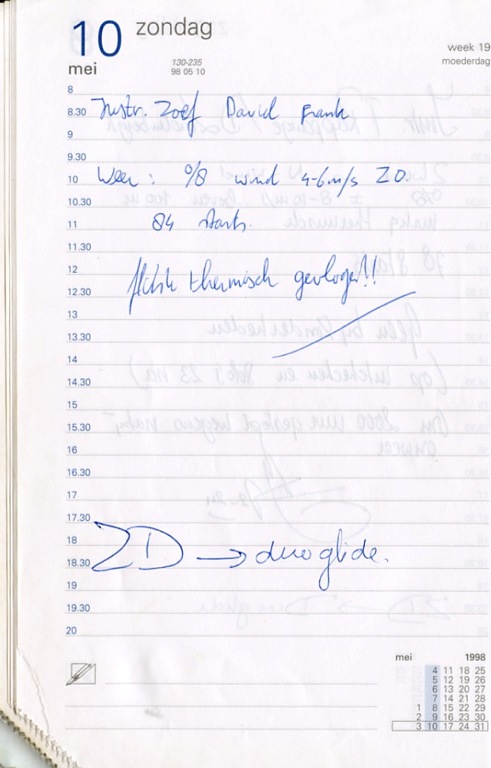 10 zondag
mei
130-235
98 05 10
week 19
moederdag
8
8.30 Instr. Zoef David Frank
9
9.30
10 Weer: 0/8 wind 4-6 m/s ZO.
10.30
11 84 starts.
11.30
12
12.30 thermisch gevlogen!!
13
13.30
14
14.30
15
15.30
16
16.30
17
17.30
18
18.30 ZD → duo glide.
19
19.30
20
mei 1998
4 11 18 25
5 12 19 26
6 13 20 27
7 14 21 28
1 8 15 22 29
2 9 16 23 30
3 10 17 24 31